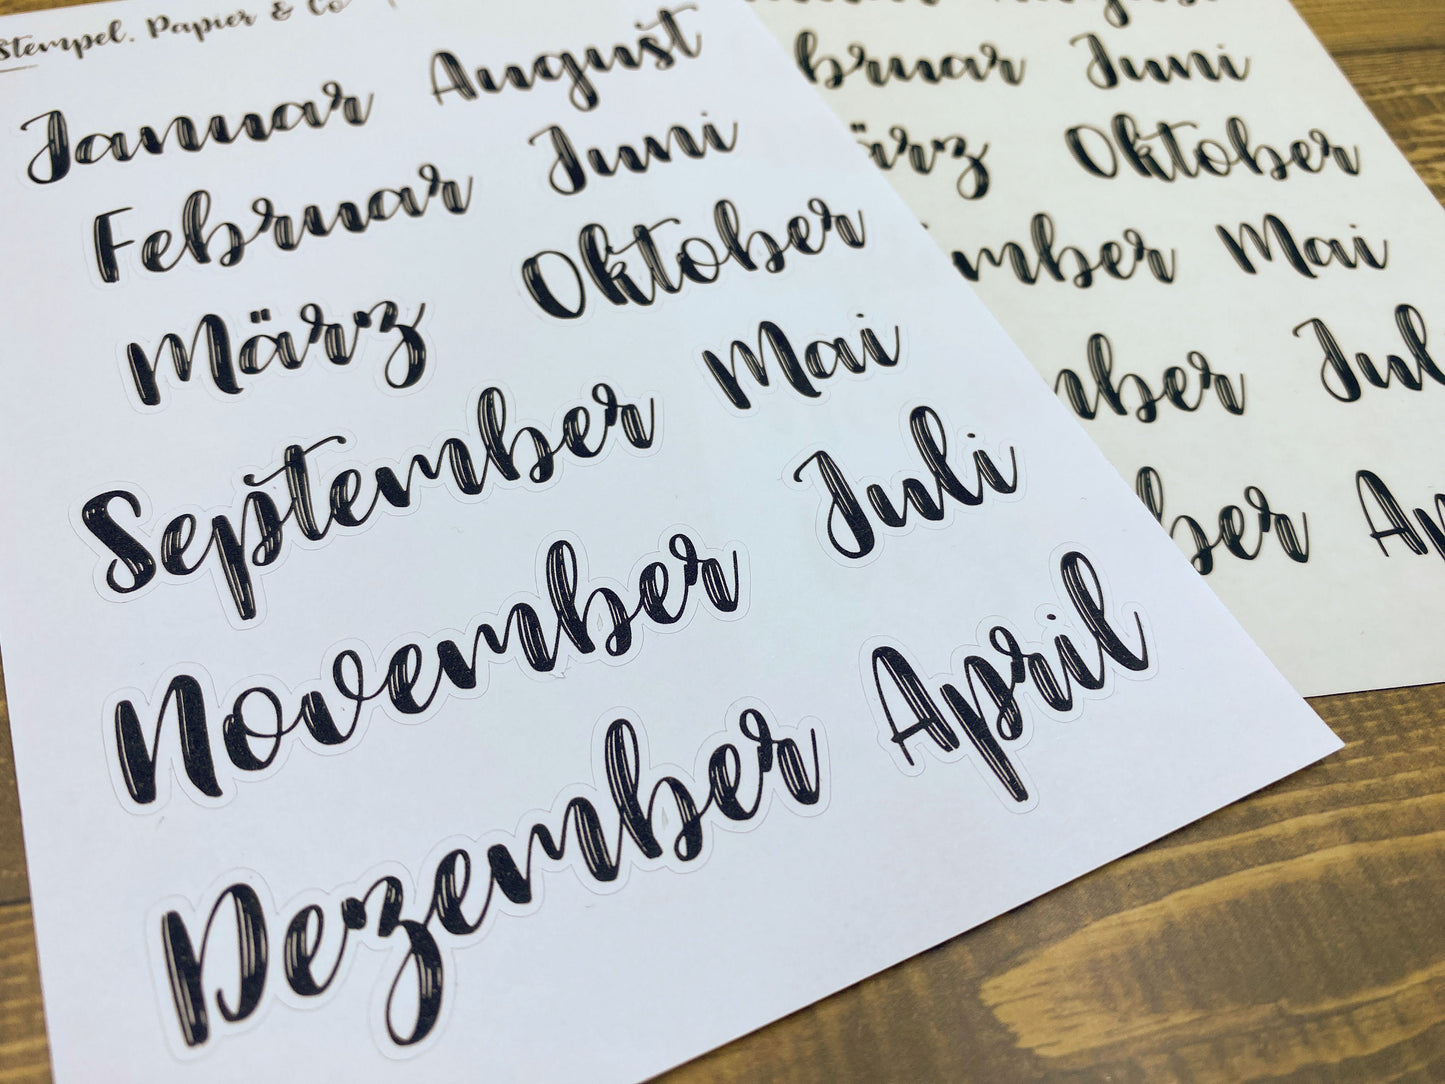 Stempel. Papier & Co
Januar August
Februar Juni
März Oktober
September Mai
November Juli
Dezember April
Juni
Oktober
Mai